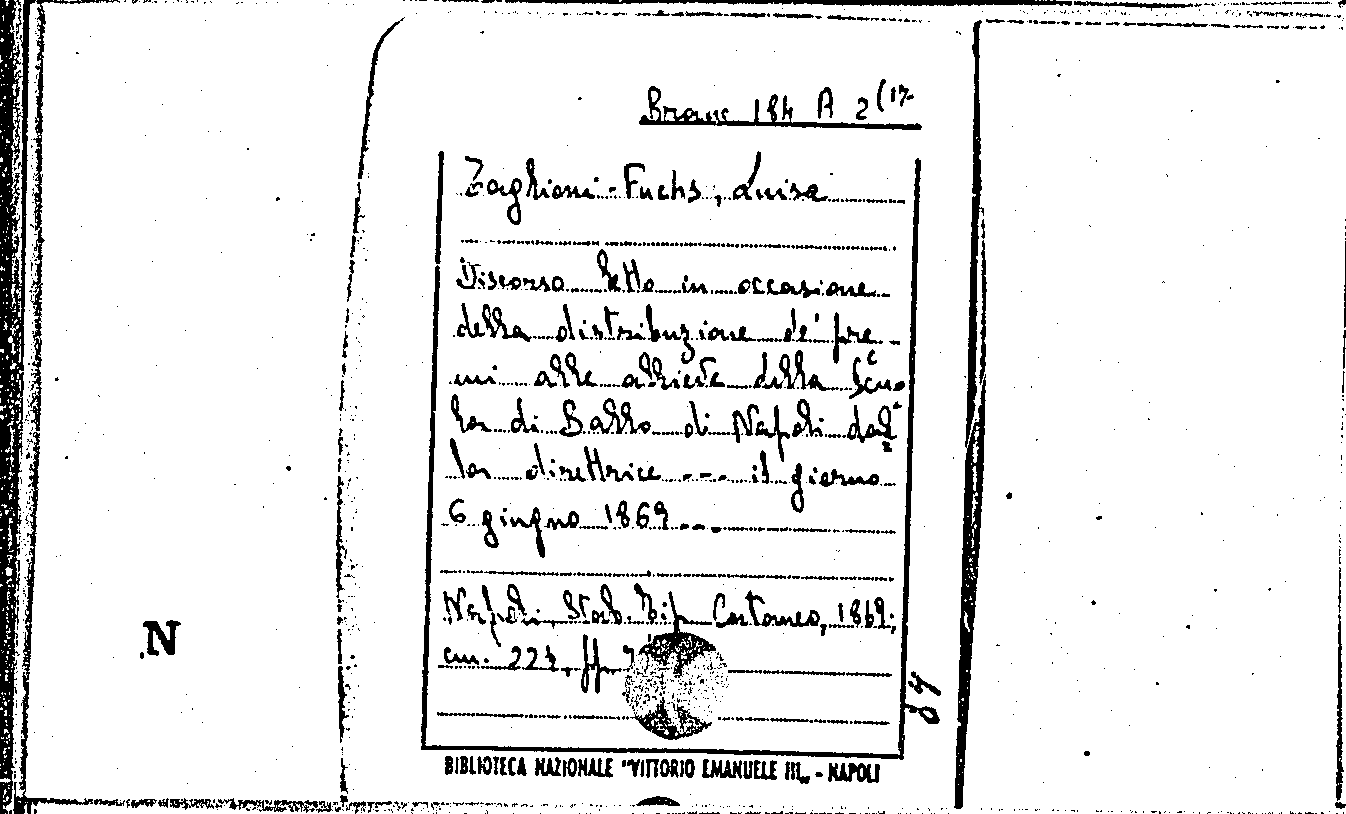 Branc 184 A 2 (17-
Taglioni-Fuchs, Luisa
Discorso letto in occasione
della distribuzione de' pre-
mi alle allieve della Scuo
la di Ballo di Napoli dal
la direttrice --- il giorno
6 giugno 1869...
Napoli, Stab. Tip. Cattaneo, 1869;
cm. 22½, ff.
84
N
BIBLIOTECA NAZIONALE "VITTORIO EMANUELE III„ - NAPOLI